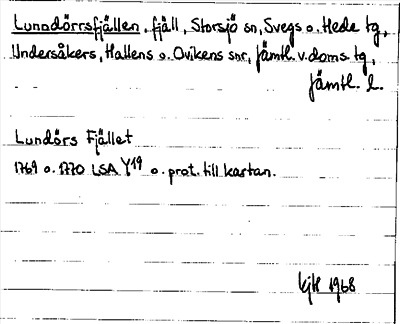 Lunndörrsfjällen, fjäll, Storsjö sn, Svegs o. Hede tg,
Undersåkers, Hallens o. Ovikens snr, Jämtl. v. doms. tg,
Jämtl. l.
Lundörs Fjället
1769 o. 1770 LSA Y19 o. prot. till kartan.
1968